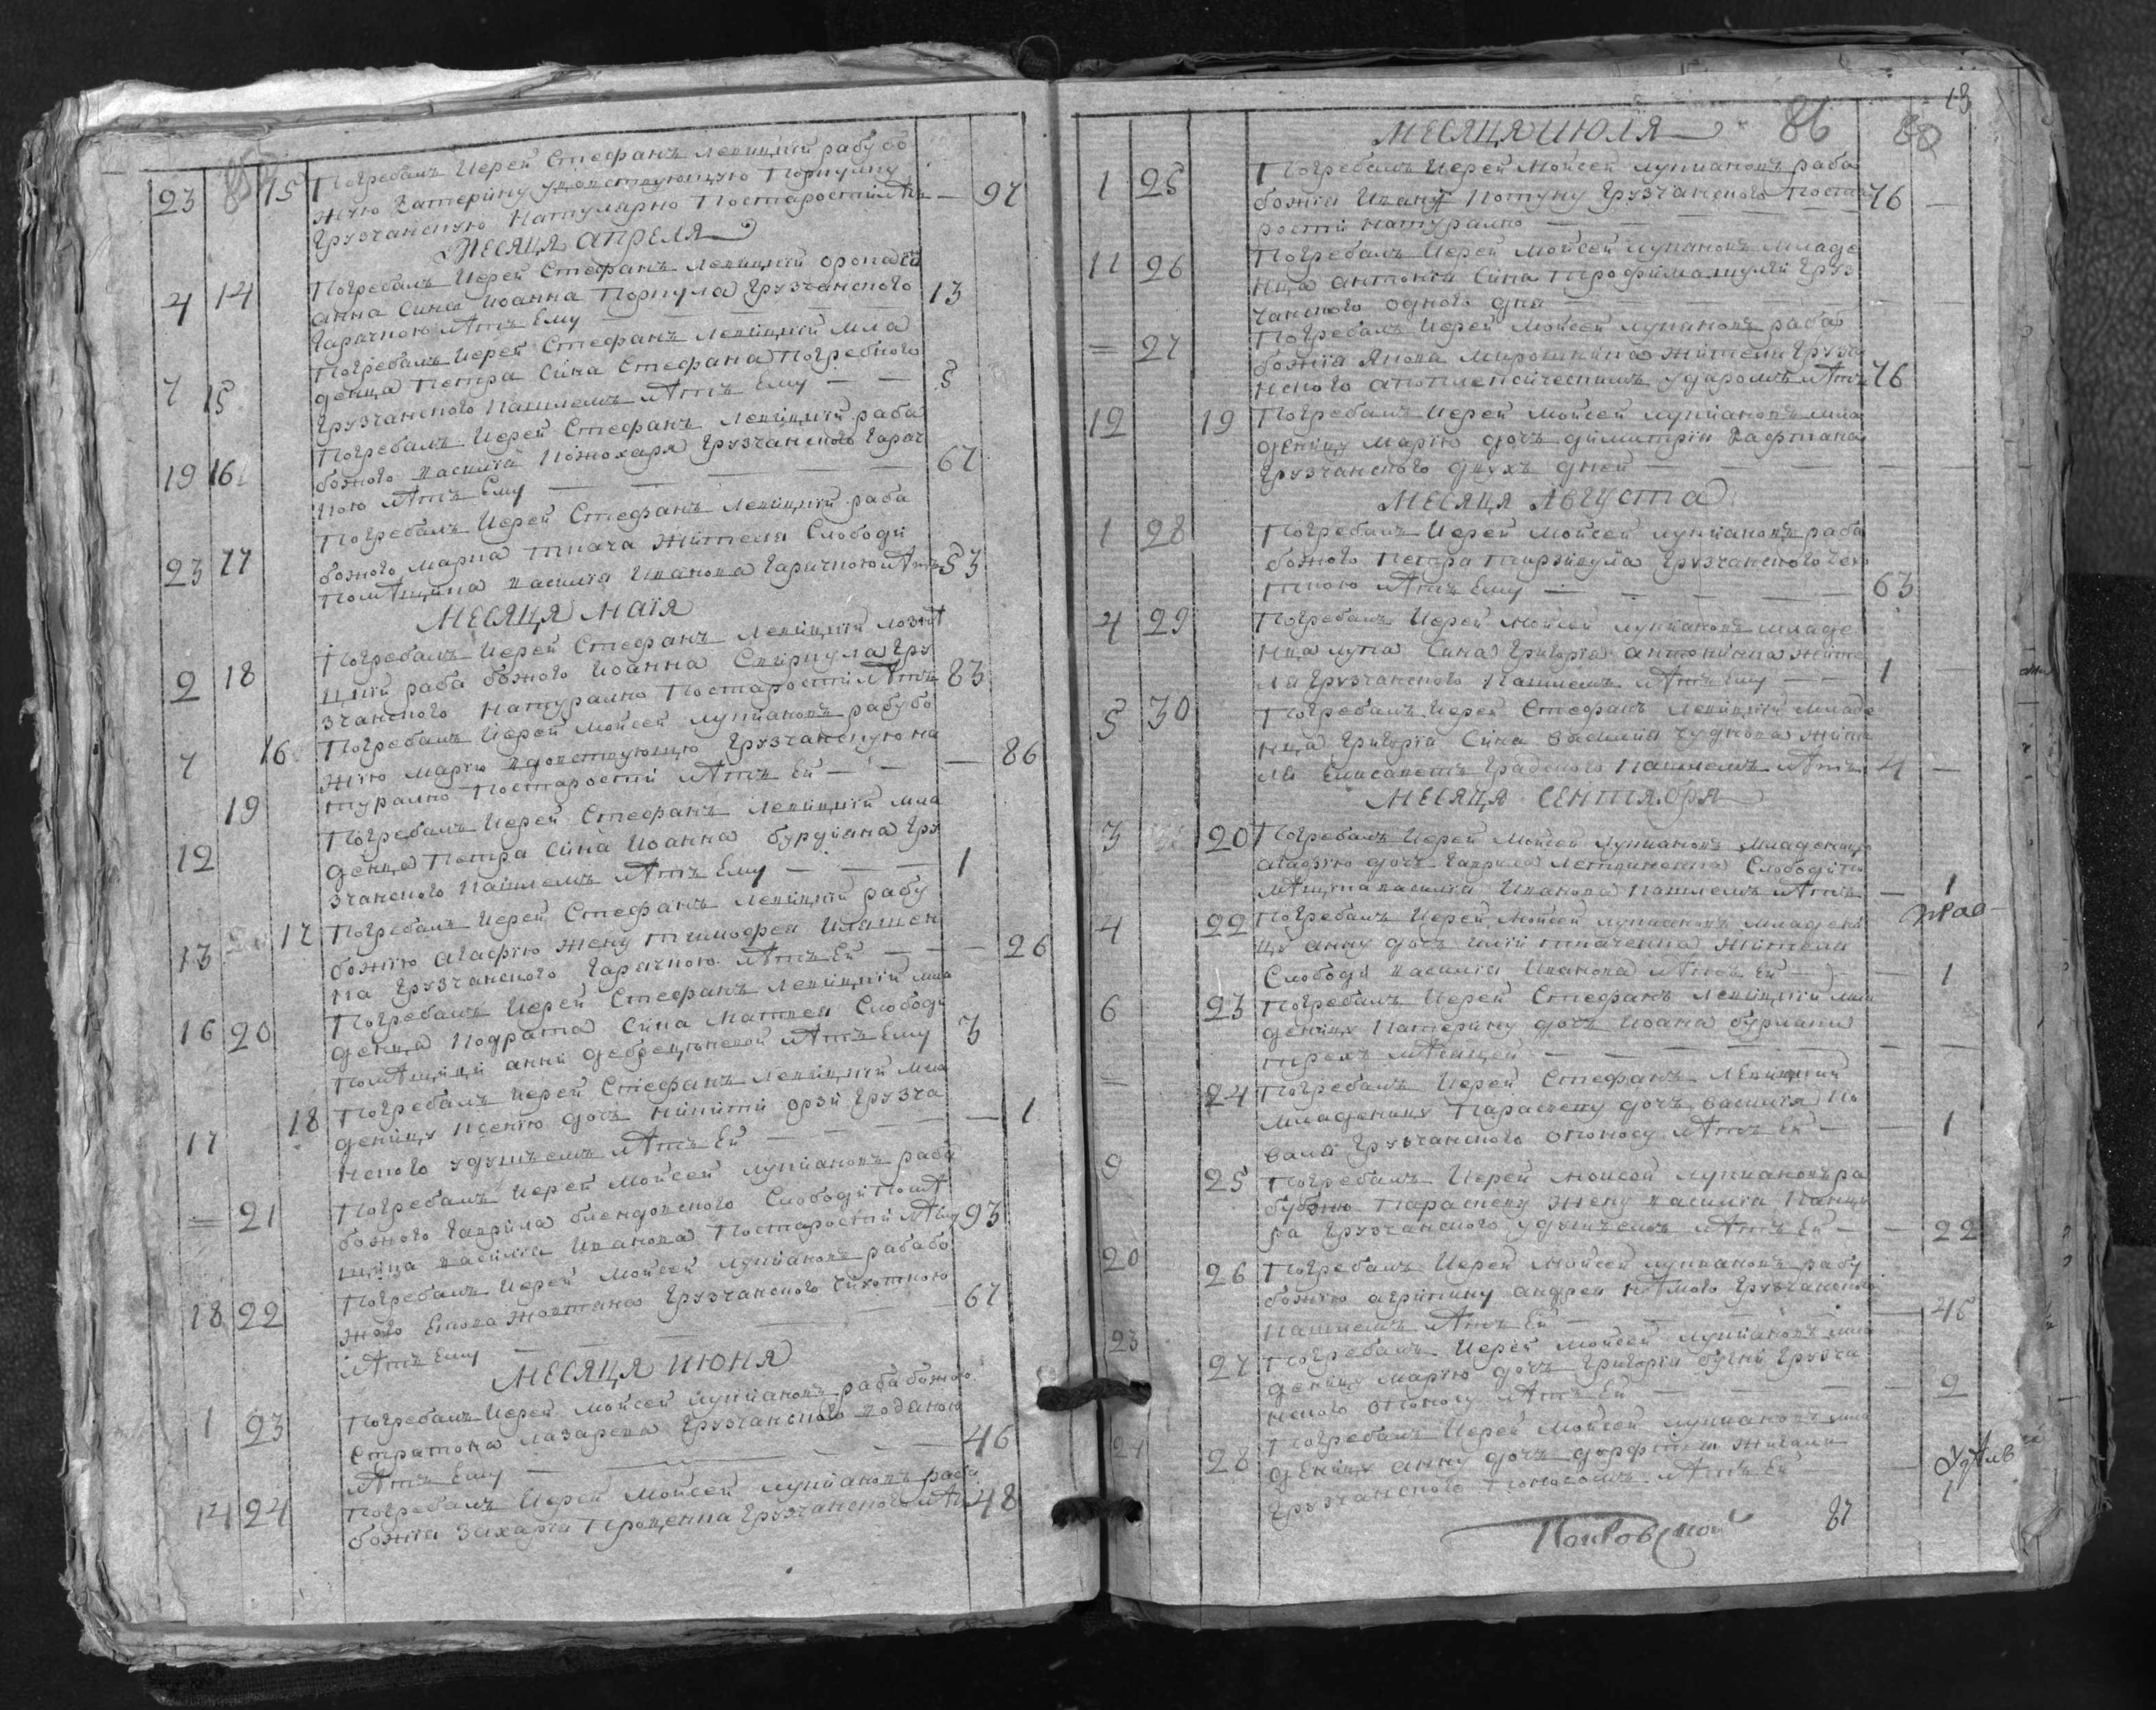 23 15 Погребалъ Иерей Стефанъ Левицкий рабу бо
жию Катерину удовствующую Поркулиу
Грузчанскую Натурално Постаростилѣтъ — 97
Месяца Апреля
Погребалъ Иерей Стефанъ Левицкий
4 14 анна Сина Иоанна Поркула Грузчанского 13
Гарячкою лѣтъ Ему
Погребалъ Иерей Стефанъ Левицкий мла
7 15 денца Петра Сина Стефана Погребного
Грузчанского Кашлемъ лѣтъ Ему — — 5
Погребалъ Иерей Стефанъ Левицкий раба
19 16 божого Василия Кожохаря Грузчанского Гаряч
кою лѣтъ Ему — — — 67
Погребалъ Иерей Стефанъ Левицкий раба
23 17 божого Марка Ткача Жителя Слободи
Помѣщика Василия Иванова Гарячкою лѣтъ 53
Месяца Маия
Погребалъ Иерей Стефанъ Левицкий
2 18 раба божого Иоанна Свиркула Гру
зчанского Натурално Постарости лѣтъ 83
Погребалъ Иерей Мойсей Лукиановъ рабу бо
7 16 жию Марию вдовствующю Грузчанскую на
турално Постарости лѣтъ Ей — — — 86
19 Погребалъ Иерей Стефанъ Левицкий мла
12 денца Петра Сина Иоанна Гру
зчанского Кашлемъ лѣтъ Ему — — 1
13 17 Погребалъ Иерей Стефанъ Левицкий рабу
божию Агафию жену Тимофея Иляшен
ка Грузчанского Гарячкою лѣтъ Ей — — 26
Погребалъ Иерей Стефанъ Левицкий мла
16 20 денца Кодрата Сина Матвея Слободи
Помѣщици анни лѣтъ Ему 3
Погребалъ Иерей Стефанъ Левицкий мла
17 18 деницу Ксению дочъ Никити Грузча
нского удушъемъ лѣтъ Ей — — — 1
Погребалъ Иерей Мойсей Лукиановъ раба
= 21 божого Гаврила Слободи Помѣ
щика Василия Иванова Постарости лѣтъ 93
Погребалъ Иерей Мойсей Лукиановъ раба бо
18 22 жого Якова Жовтана Грузчанского Чихоткою
лѣтъ Ему — — — 67
Месяца Июня
Погребалъ Иерей Мойсей Лукиановъ раба божого
1 23 Стратона Лазарева Грузчанского водяною
лѣтъ Ему — — 46
Погребалъ Иерей Мойсей Лукиановъ раба
14 24 божия Захария Проценка Грузчанского лѣтъ 48
13
Месяца Июля 86 80
Погребалъ Иерей Мойсей Лукиановъ раба
1 25 божия Ивана Грузчанского Поста
рости натурално — — 76 —
Погребалъ Иерей Мойсей Лукиановъ младе
11 26 нца Антония Сина Трофима Груз
чанского одного дня — —
Погребалъ Иерей Мойсей Лукиановъ раба
= 27 божия Якова Мирошника Жителя Грузча
нского апоплексическимъ ударомъ лѣтъ 76
12 19 Погребалъ Иерей Мойсей Лукиановъ мла
деницу Марию дочъ Димитрия Кафтана
Грузчанского двухъ дней — —
Месяца Августа
1 28 Погребалъ Иерей Мойсей Лукиановъ раба
божого Петра Грузчанского Чехо
ткою лѣтъ Ему — — 63
4 29 Погребалъ Иерей Мойсей Лукиановъ младе
нца Луку Сина Григория Жите
ля Грузчанского Кашлемъ лѣтъ Ему — — 1 —
5 30 Погребалъ Иерей Стефанъ Левицкий младе
нца Григория Сина Василия Чуднова Жите
ля Елисаветъ Градского Кашлемъ лѣтъ 4 —
Месяца Сентября
3 20 Погребалъ Иерей Мойсей Лукиановъ младеницу
Агафию дочъ Гаврила Слободи По
мѣщика Василия Иванова Кашлемъ лѣтъ — 1
4 22 Погребалъ Иерей Мойсей Лукиановъ младени
цу анну дочъ Илии Ткаченка Жителя
Слободи Василия Иванова лѣтъ Ей — — 1
6 23 Погребалъ Иерей Стефанъ Левицкий мла
деницу Катерину дочъ Иоана
трехъ мѣсяцей — — —
= 24 Погребалъ Иерей Стефанъ Левицкий
младеницу Параскеву дочъ Василия Ко
валя Грузчанского Споносу лѣтъ Ей — — 1
9 25 Погребалъ Иерей Мойсей Лукиановъ ра
бу божию Параскеву Жену Василия
ра Грузчанского удушъемъ лѣтъ Ей — — 22
20 26 Погребалъ Иерей Мойсей Лукиановъ рабу
божию Агрипину Андрея Нѣмого Грузчанского
Кашлемъ лѣтъ Ей — — 45
23 27 Погребалъ Иерей Мойсей Лукиановъ мла
деницу Марию дочъ Григория Грузча
нского Споносу лѣтъ Ей — — 2
24 28 Погребалъ Иерей Мойсей Лукиановъ мла
деницу анну дочъ
Грузчанского Поносомъ лѣтъ Ей — 1
87